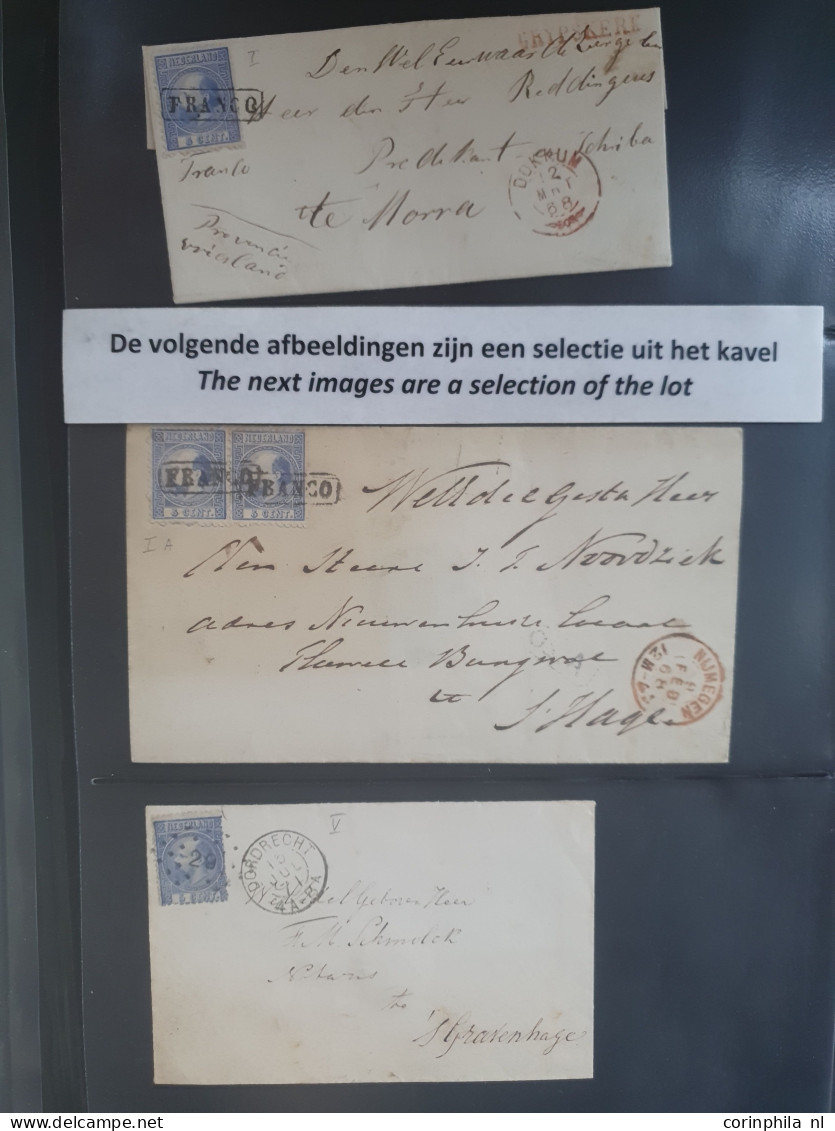 GRYPSKERK
I
NEDERLAND
FRANCO
5 CENT.
Den Wel Eerwaarde
Heer den Heer Reddingius
Predikant
te Morra
Franco
Provincie
vriesland
DOKKUM
12
MRT
68
De volgende afbeeldingen zijn een selectie uit het kavel
The next images are a selection of the lot
NEDERLAND NEDERLAND
FRANCO FRANCO
5 CENT. 5 CENT.
I A
Heer
Den Heere J. J. Noordziek
adres
te
s'Hage
NIJMEGEN
9
FEB
68
12M-4A
V
NEDERLAND
29
5 CENT.
DORDRECHT
15
71
4A-8A
WelGeboren Heer
Schmolck
Notaris
te
'sGravenhage
www.corinphila.nl